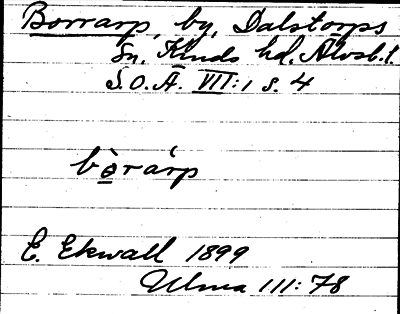 Borrarp, by, Dalstorps
Sn, Kinds hd. Älvsb.l.
S.O.Ä. VII:1 s. 4
bə̀rárp
E. Ekwall 1899
Ulma 111:78